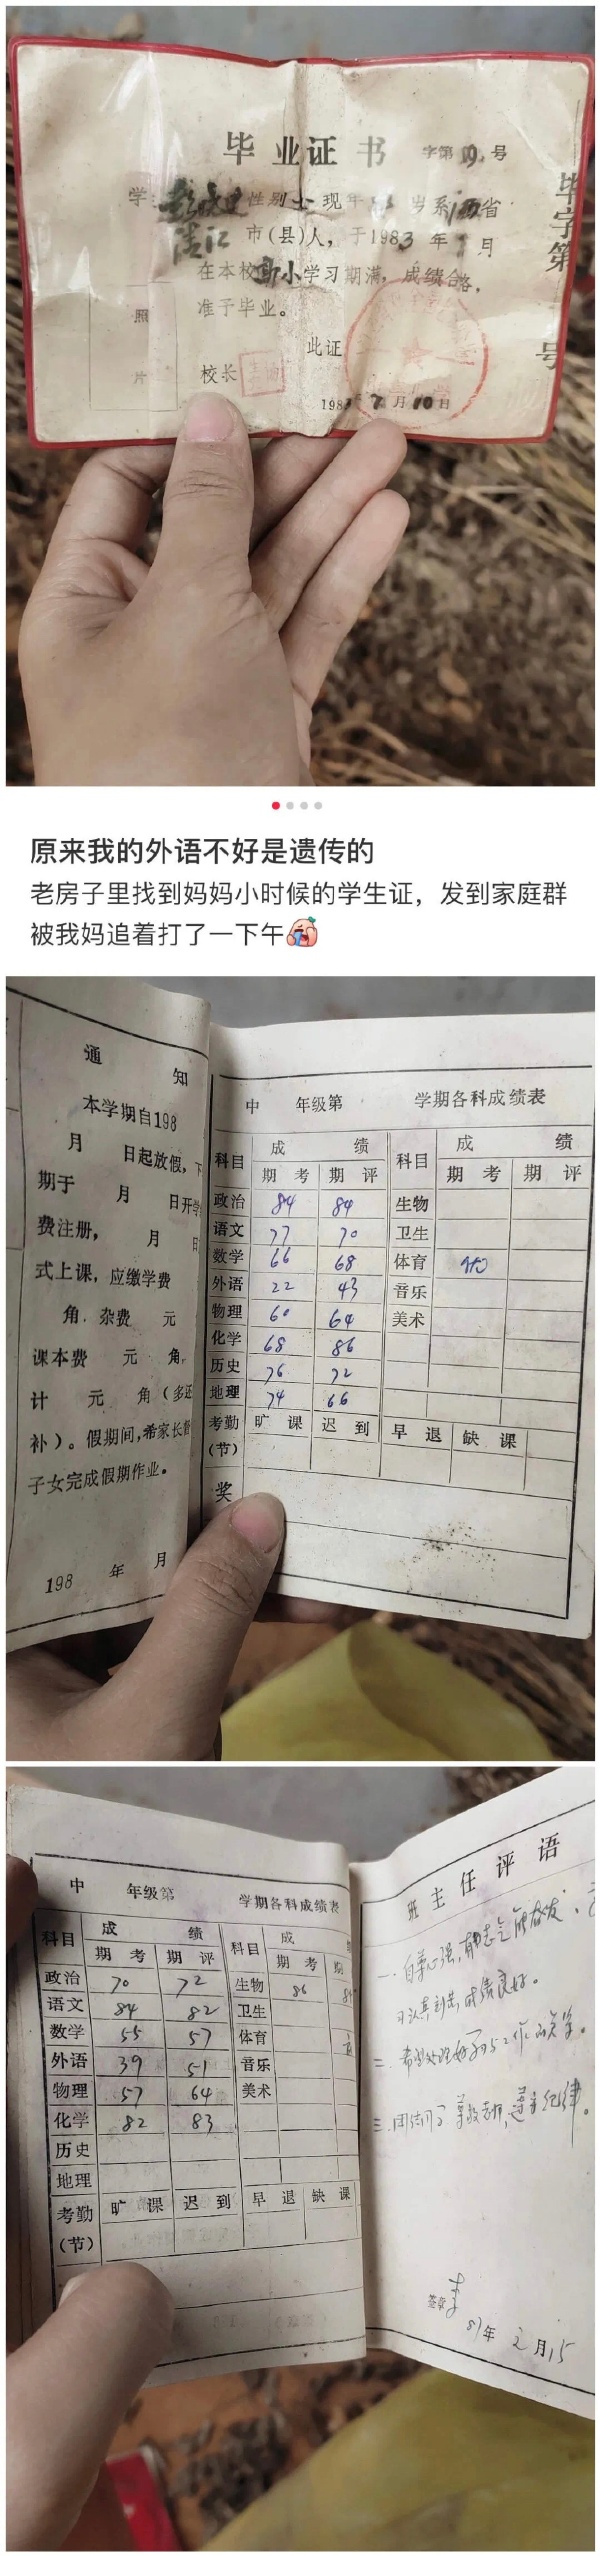 毕业证书 字第 号
学 性别 现年 岁系江西省
清江 市(县)人，于1983 年 月
在本校高小学习期满，成绩合格，
准予毕业。
照
片
此证
校长
198 年 7 月 10 日
毕字第
号
原来我的外语不好是遗传的
老房子里找到妈妈小时候的学生证，发到家庭群
被我妈追着打了一下午
通 知
本学期自198
月 日起放假，下
期于 月 日开学
费注册， 月 日
式上课，应缴学费
角，杂费 元
课本费 元 角，
计 元 角（多还
补）。假期间，希家长督
子女完成假期作业。
198 年 月
中 年级第 学期各科成绩表
科目 成 绩 科目 成 绩
期 考 期 评 期 考 期 评
政治 84 84 生物
语文 77 70 卫生
数学 66 68 体育
外语 22 43 音乐
物理 60 64 美术
化学 68 86
历史 76 72
地理 74 66
考勤(节) 旷 课 迟 到 早 退 缺 课
奖
中 年级第 学期各科成绩表
科目 成 绩 科目 成 绩
期 考 期 评 期 考 期
政治 70 72 生物 86
语文 84 82 卫生
数学 55 57 体育
外语 39 51 音乐
物理 57 64 美术
化学 82 83
历史
地理
考勤(节) 旷 课 迟 到 早 退 缺 课
班主任评语
一. 自尊心强,
学习认真刻苦, 成绩良好。
二. 希望处理好学习与工作的关系。
三. 团结同学 尊敬老师, 遵守纪律。
签章
87年 2 月 15